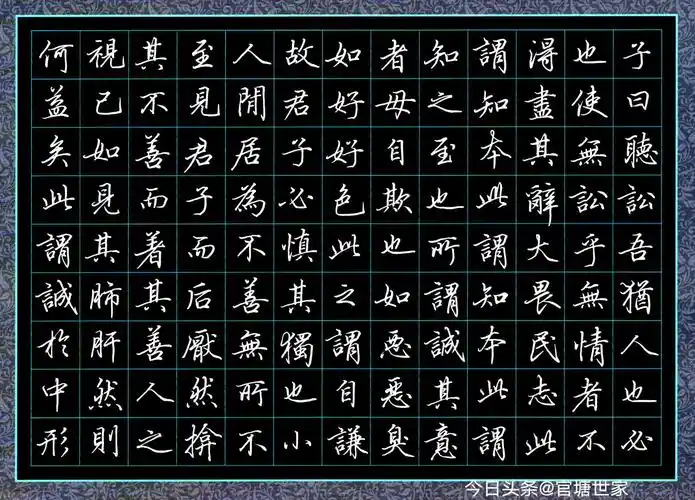 子曰聽訟吾猶人也必
也使無訟乎無情者不
淂盡其辭大畏民志此
謂知本此謂知本此謂
知之至也所謂誠其意
者毋自欺也如惡惡臭
如好好色此之謂自謙
故君子必慎其獨也小
人閒居為不善無所不
至見君子而后厭然揜
其不善而著其善人之
視己如見其肺肝然則
何益矣此謂誠於中形
今日头条@官塘世家